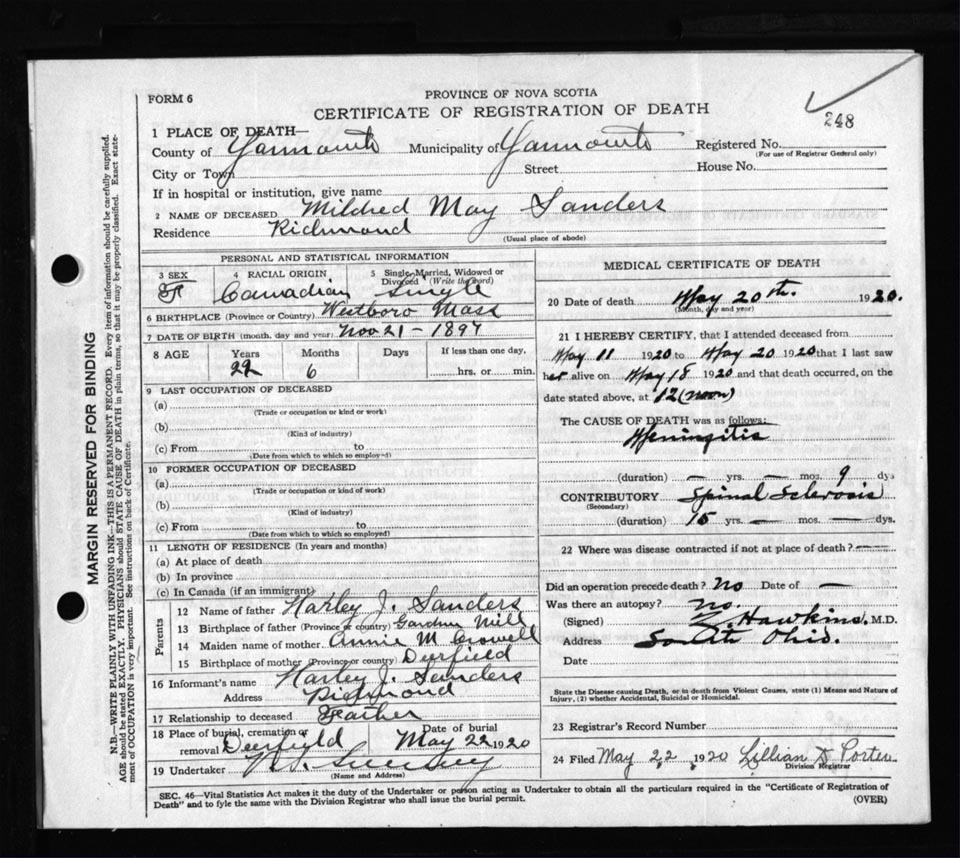 FORM 6
PROVINCE OF NOVA SCOTIA
CERTIFICATE OF REGISTRATION OF DEATH
248
1 PLACE OF DEATH—
County of Yarmouth Municipality of Yarmouth Registered No.
(For use of Registrar General only)
City or Town Street House No.
If in hospital or institution, give name
2 NAME OF DECEASED Mildred May Sanders
Residence Richmond
(Usual place of abode)
MARGIN RESERVED FOR BINDING
N.B.—WRITE PLAINLY WITH UNFADING INK—THIS IS A PERMANENT RECORD. Every item of information should be carefully supplied.
AGE should be stated EXACTLY. PHYSICIANS should STATE CAUSE OF DEATH in plain terms, so that it may be properly classified. Exact state-
ment of OCCUPATION is very important. See instructions on back of Certificate.
PERSONAL AND STATISTICAL INFORMATION
3 SEX 4 RACIAL ORIGIN 5 Single, Married, Widowed or
Divorced (Write the word)
F Canadian Single
6 BIRTHPLACE (Province or Country) Westboro Mass
7 DATE OF BIRTH (month, day and year) Nov 21 - 1897
8 AGE Years Months Days If less than one day,
22 6 hrs. or min.
9 LAST OCCUPATION OF DECEASED
(a)
(Trade or occupation or kind or work)
(b)
(Kind of industry)
(c) From to
(Date from which to which so employed)
10 FORMER OCCUPATION OF DECEASED
(a)
(Trade or occupation or kind of work)
(b)
(Kind of industry)
(c) From to
(Date from which to which so employed)
11 LENGTH OF RESIDENCE (In years and months)
(a) At place of death
(b) In province
(c) In Canada (if an immigrant)
Parents
12 Name of father Harley J. Sanders
13 Birthplace of father (Province or country) Gardner Mill
14 Maiden name of mother Annie M Crowell
15 Birthplace of mother (Province or country) Deerfield
16 Informant's name Harley J. Sanders
Address Richmond
17 Relationship to deceased Father
18 Place of burial, cremation or removal Deerfield Date of burial May 22 1920
19 Undertaker
(Name and Address)
MEDICAL CERTIFICATE OF DEATH
20 Date of death May 20th. 1920.
(Month, day and year)
21 I HEREBY CERTIFY, that I attended deceased from
May 11 1920 to May 20 1920 that I last saw
her alive on May 18 1920 and that death occurred, on the
date stated above, at 12 (noon)
The CAUSE OF DEATH was as follows:
Meningitis
(duration) — yrs. — mos. 9 dys
CONTRIBUTORY Spinal Sclerosis
(Secondary)
(duration) 15 yrs. — mos. — dys.
22 Where was disease contracted if not at place of death? —
Did an operation precede death? No Date of —
Was there an autopsy? No.
(Signed) Hawkins. M.D.
Address South Ohio.
Date
State the Disease causing Death, or in death from Violent Causes, state (1) Means and Nature of
Injury, (2) whether Accidental, Suicidal or Homicidal.
23 Registrar's Record Number
24 Filed May 22, 1920 Lillian D Porter
Division Registrar
SEC. 46—Vital Statistics Act makes it the duty of the Undertaker or person acting as Undertaker to obtain all the particulars required in the "Certificate of Registration of
Death" and to fyle the same with the Division Registrar who shall issue the burial permit.
(OVER)